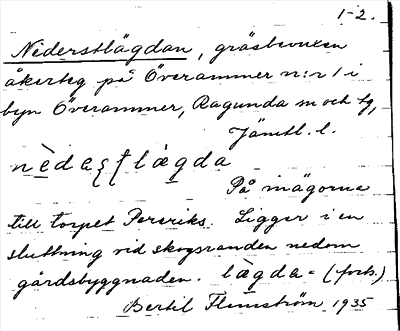 1-2.
Nederstlägdan, gräsbevuxen
åkerteg på Överammer n:r 1 i
byn Överammer, Ragunda sn och tg,
Jämtl. l.
På inägorna
till torpet Pereriks. Ligger i en
sluttning vid skogsranden nedom
gårdsbyggnaden. lägda = (forts.)
Bertil Flemström 1935